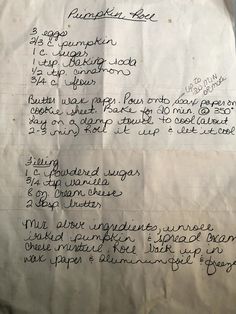 Pumpkin Roll
3 eggs
2/3 c. pumpkin
1 c. sugar
1 tsp. baking soda
1/2 tsp. cinnamon
3/4 c. flour
up to 20 min
or more
Butter wax paper. Pour onto wax paper on
cookie sheet. Bake for 10 min. @ 350°
Lay on a damp towel to cool (about
2-3 min) Roll it up & let it cool
Filling
1 c. powdered sugar
3/4 tsp vanilla
8 oz. cream cheese
2 tbsp butter
Mix above ingredients, unroll
baked pumpkin & spread cream
cheese mixture. Roll back up in
wax paper & aluminum foil & freeze